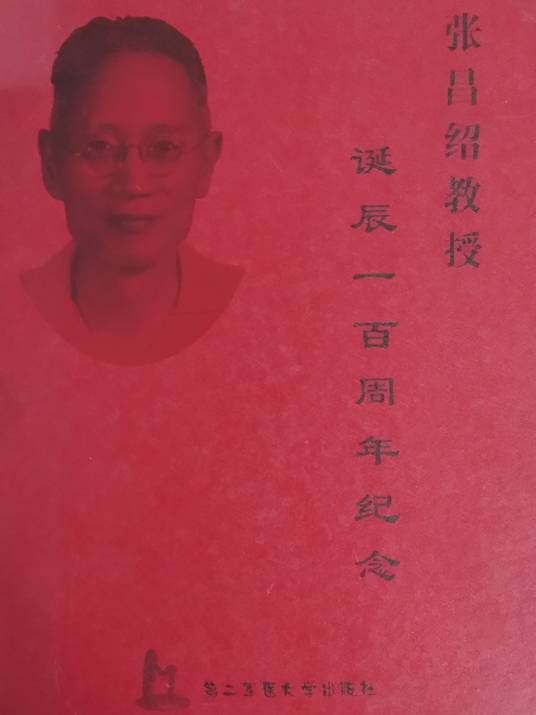 张昌绍教授
诞辰一百周年纪念
第二军医大学出版社